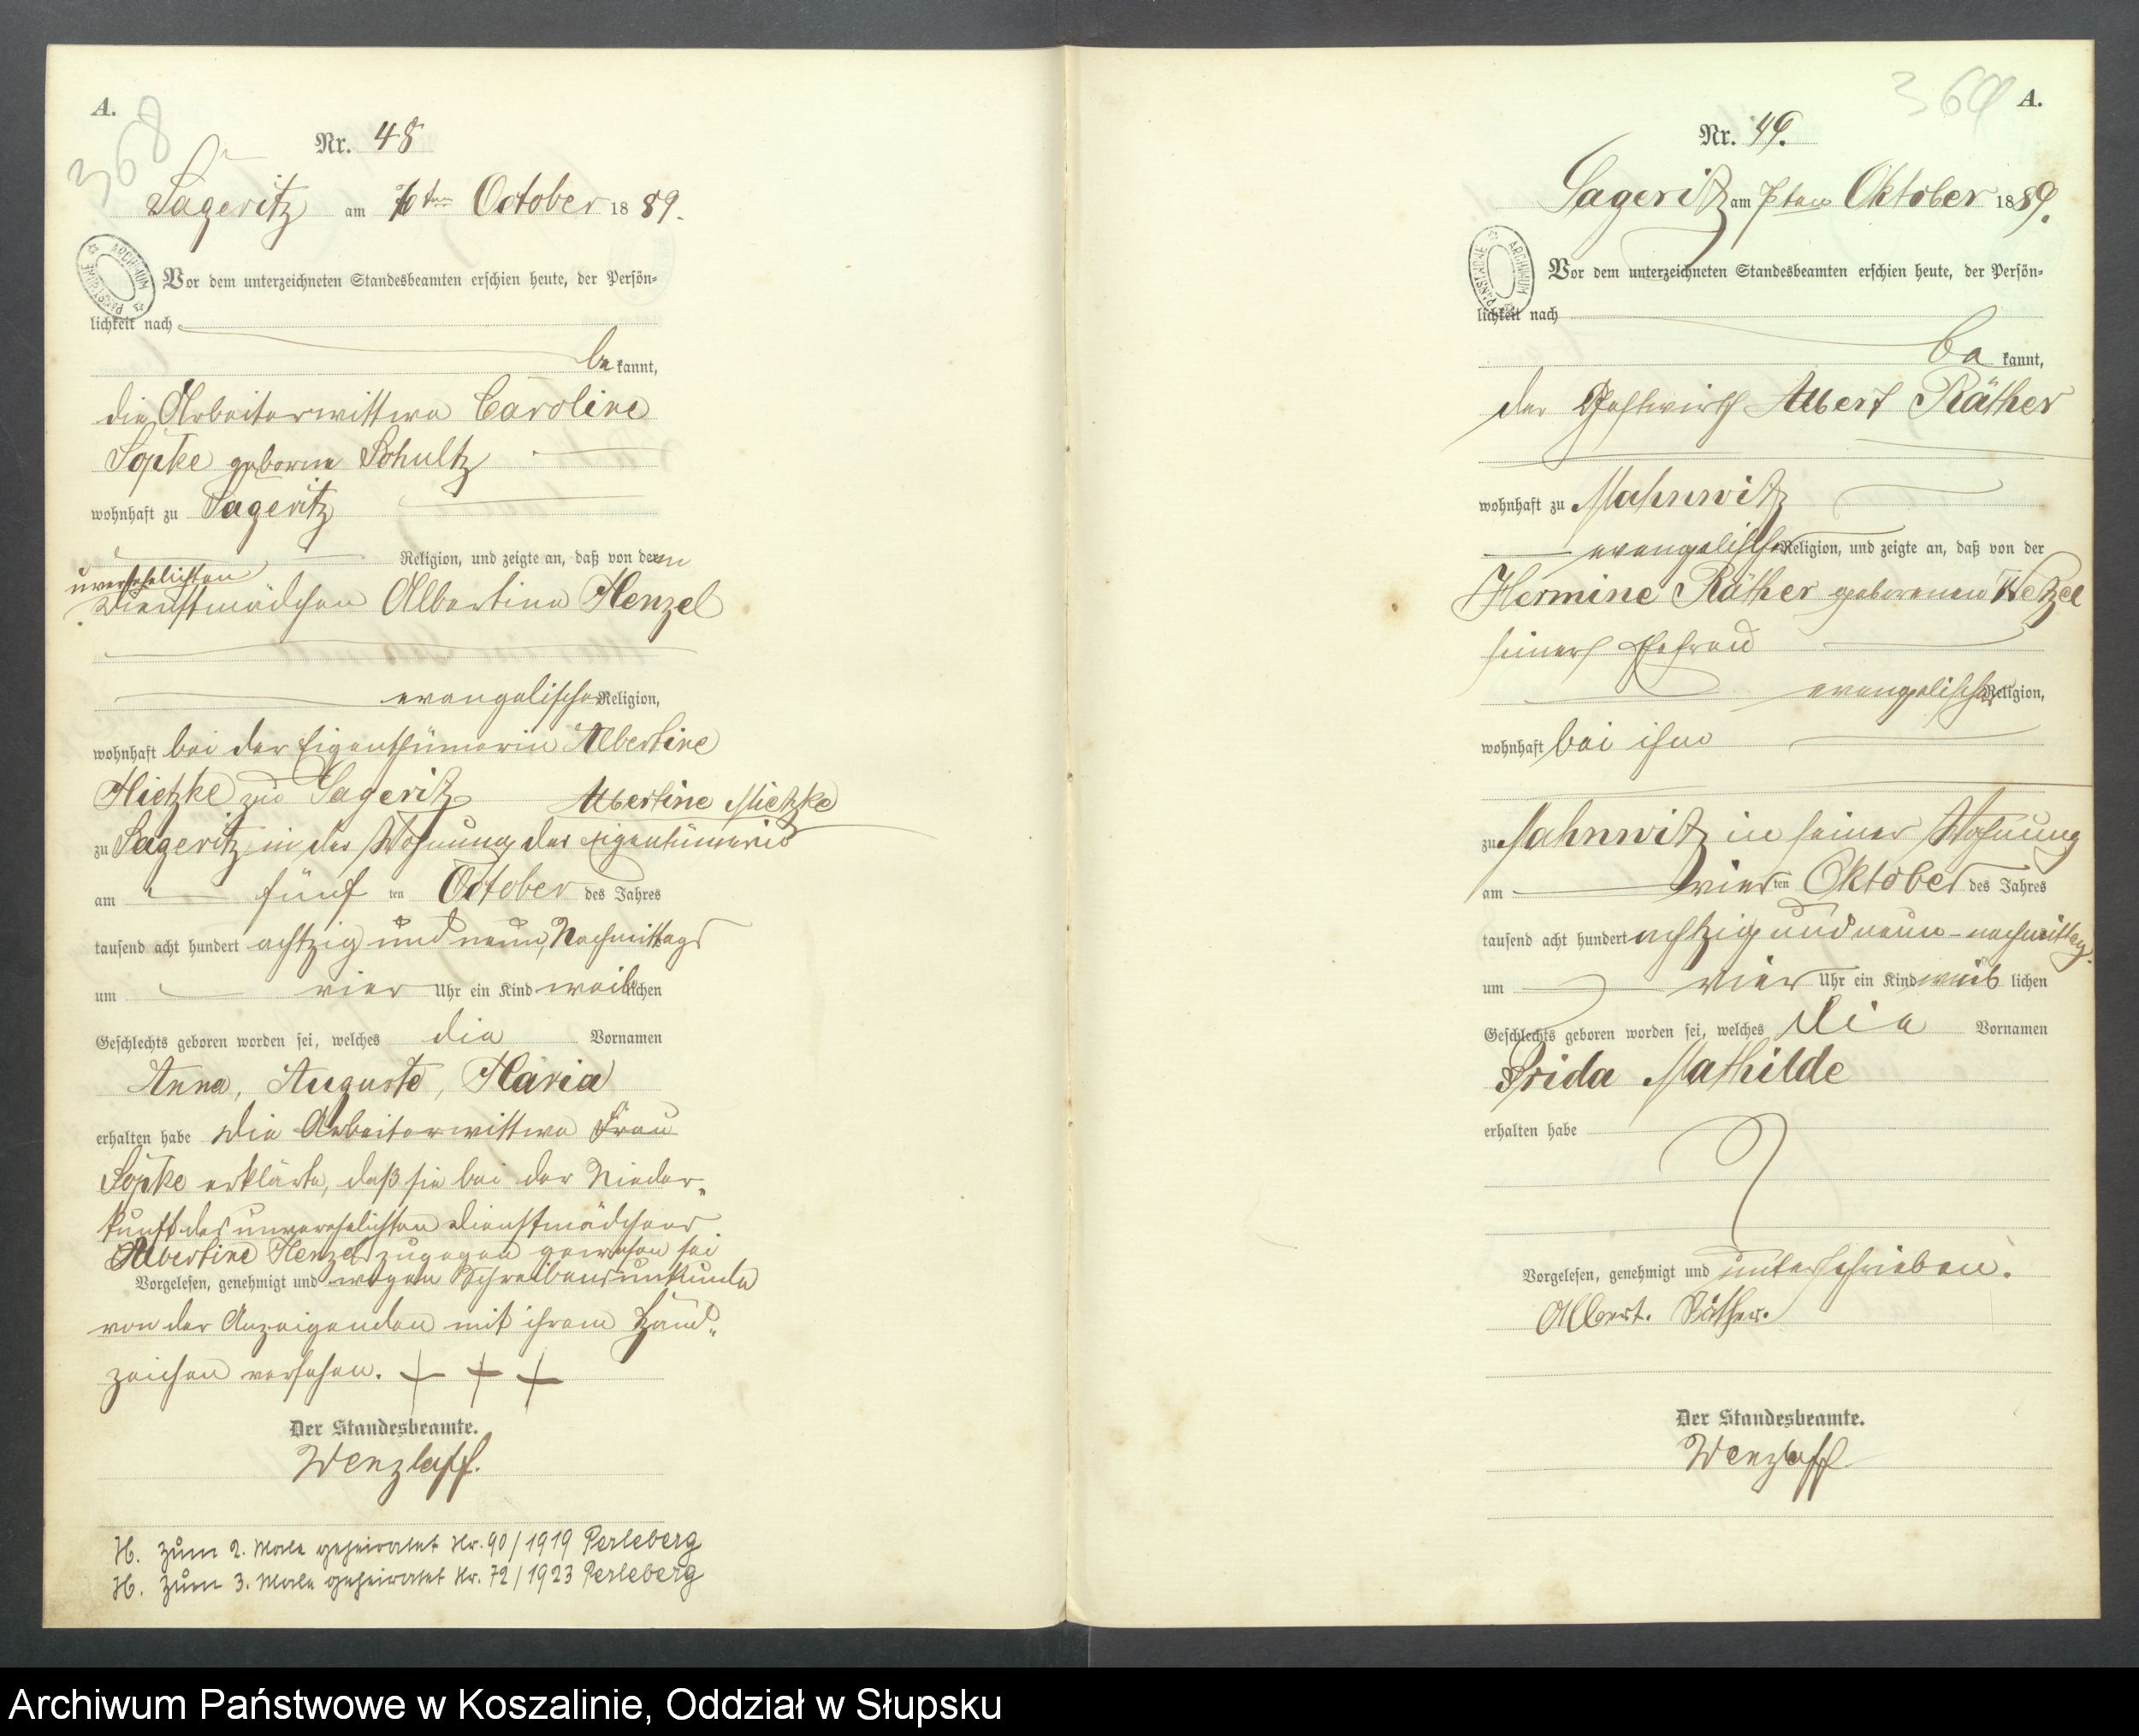 A.
368
Nr. 48
Sageritz am 7ten October 1889.
Vor dem unterzeichneten Standesbeamten erschien heute, der Persön=
lichkeit nach
be kannt,
die Arbeiterwittwe Caroline
Sopke geborne Schultz
wohnhaft zu Sageritz
Religion, und zeigte an, daß von dem
unverehelichten
Dienstmädchen Albertine Henzel
evangelischer Religion,
wohnhaft bei der Eigenthümerin Albertine
Mietzke zu Sageritz Albertine Mietzke
zu Sageritz in der Wohnung der Eigentümerin
am fünf ten October des Jahres
tausend acht hundert achtzig und neun, Nachmittags
um vier Uhr ein Kind weiblichen
Geschlechts geboren worden sei, welches die Vornamen
Anna, Auguste, Maria
erhalten habe Die Arbeiterwittwe Frau
Sopke erklärte, daß sie bei der Nieder„
kunft des unverehelichten Dienstmädchens
Albertine Henzel zugegen gewesen sei
Vorgelesen, genehmigt und wegen Schreibensunkunde
von der Anzeigenden mit ihrem Hand„
zeichen versehen. + + +
Der Standesbeamte.
Wenzlaff.
H. zum 2. Male geheiratet Nr. 90/1919 Perleberg
H. zum 3. Male geheiratet Nr. 72/1923 Perleberg
369 A.
Nr. 49.
Sageritz am 7ten Oktober 1889.
Vor dem unterzeichneten Standesbeamten erschien heute, der Persön=
lichkeit nach
be kannt,
der Gastwirth Albert Räther
wohnhaft zu Mahnwitz
evangelischer Religion, und zeigte an, daß von der
Hermine Räther geborenen Wetzel
seiner Ehefrau
evangelischer Religion,
wohnhaft bei ihm
zu Mahnwitz in seiner Wohnung
am vier ten Oktober des Jahres
tausend acht hundert achtzig und neun - nachmittag
um vier Uhr ein Kind weib lichen
Geschlechts geboren worden sei, welches die Vornamen
Frida Mathilde
erhalten habe
Vorgelesen, genehmigt und unterschrieben.
Albert. Räther.
Der Standesbeamte.
Wenzlaff
ARCHIWUM PAŃSTWOWE
ARCHIWUM PAŃSTWOWE
Archiwum Państwowe w Koszalinie, Oddział w Słupsku